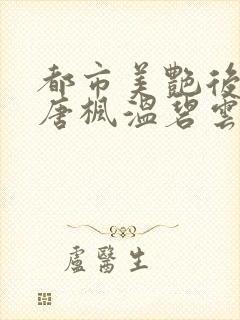 都市美艷後
唐楓溫碧雲
盧醫生